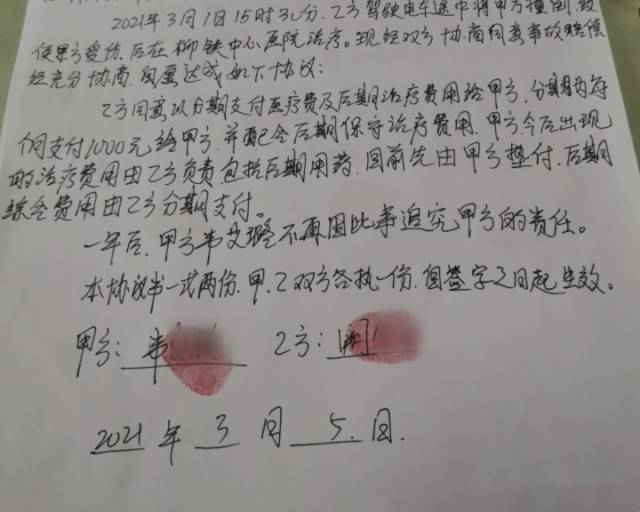 2021年3月1日15时30分.乙方驾驶电车途中将甲方撞倒,致
使甲方受伤,后在柳铁中心医院治疗。现经双方协商同意事故赔偿
经充分协商,自愿达成如下协议:
乙方同意以分期支付医疗费及后期治疗费用给甲方,分期为每
个月支付1000元给甲方,并配合后期保守治疗费用,甲方今后出现
的治疗费用由乙方负责,包括后期用药,目前先由甲方垫付,后期
综合费用由乙方分期支付。
一年后,甲方韦艾璐不再因此事追究甲方的责任。
本协议书一式两份,甲、乙双方各执一份,自签字之日起生效。
甲方:韦 乙方:
2021年3月5.日.